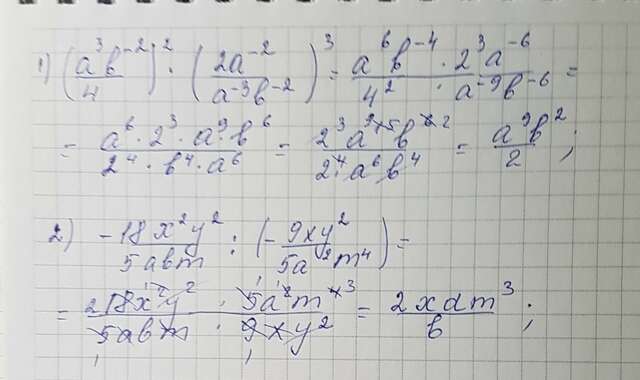 1) (a³b⁻²/4)² · (2a⁻²/a⁻³b⁻²)³ = a⁶b⁻⁴ · 2³a⁻⁶ / 4² · a⁻⁹b⁻⁶ =
= a⁶ · 2³ · a⁹ · b⁶ / 2⁴ · b⁴ · a⁶ = 2³a⁹b² / 2⁴a⁶b⁴ = a⁹b²/2 ;
2) -18x²y²/5abm : (-9xy²/5a²m⁴) =
= 218x²y² · 5a²m⁴³ / 5abm · 9xy² = 2xam³/b ;